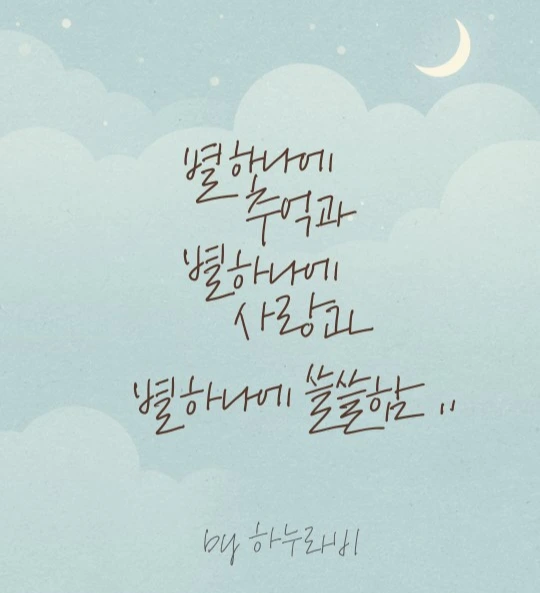 별 하나에
추억과
별 하나에
사랑과
별 하나에 쓸쓸함 ,,
by 하누라비